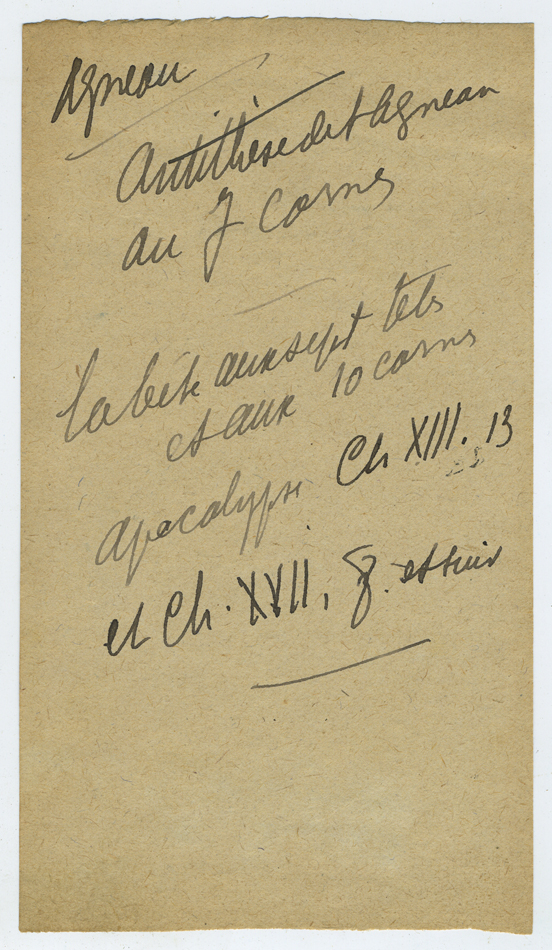 Agneau
Antithèse de l'Agneau
au 7 cornes
la bête aux sept têtes
et aux 10 cornes
Apocalypse Ch XIII. 13
et Ch. XVII, 8. et suiv